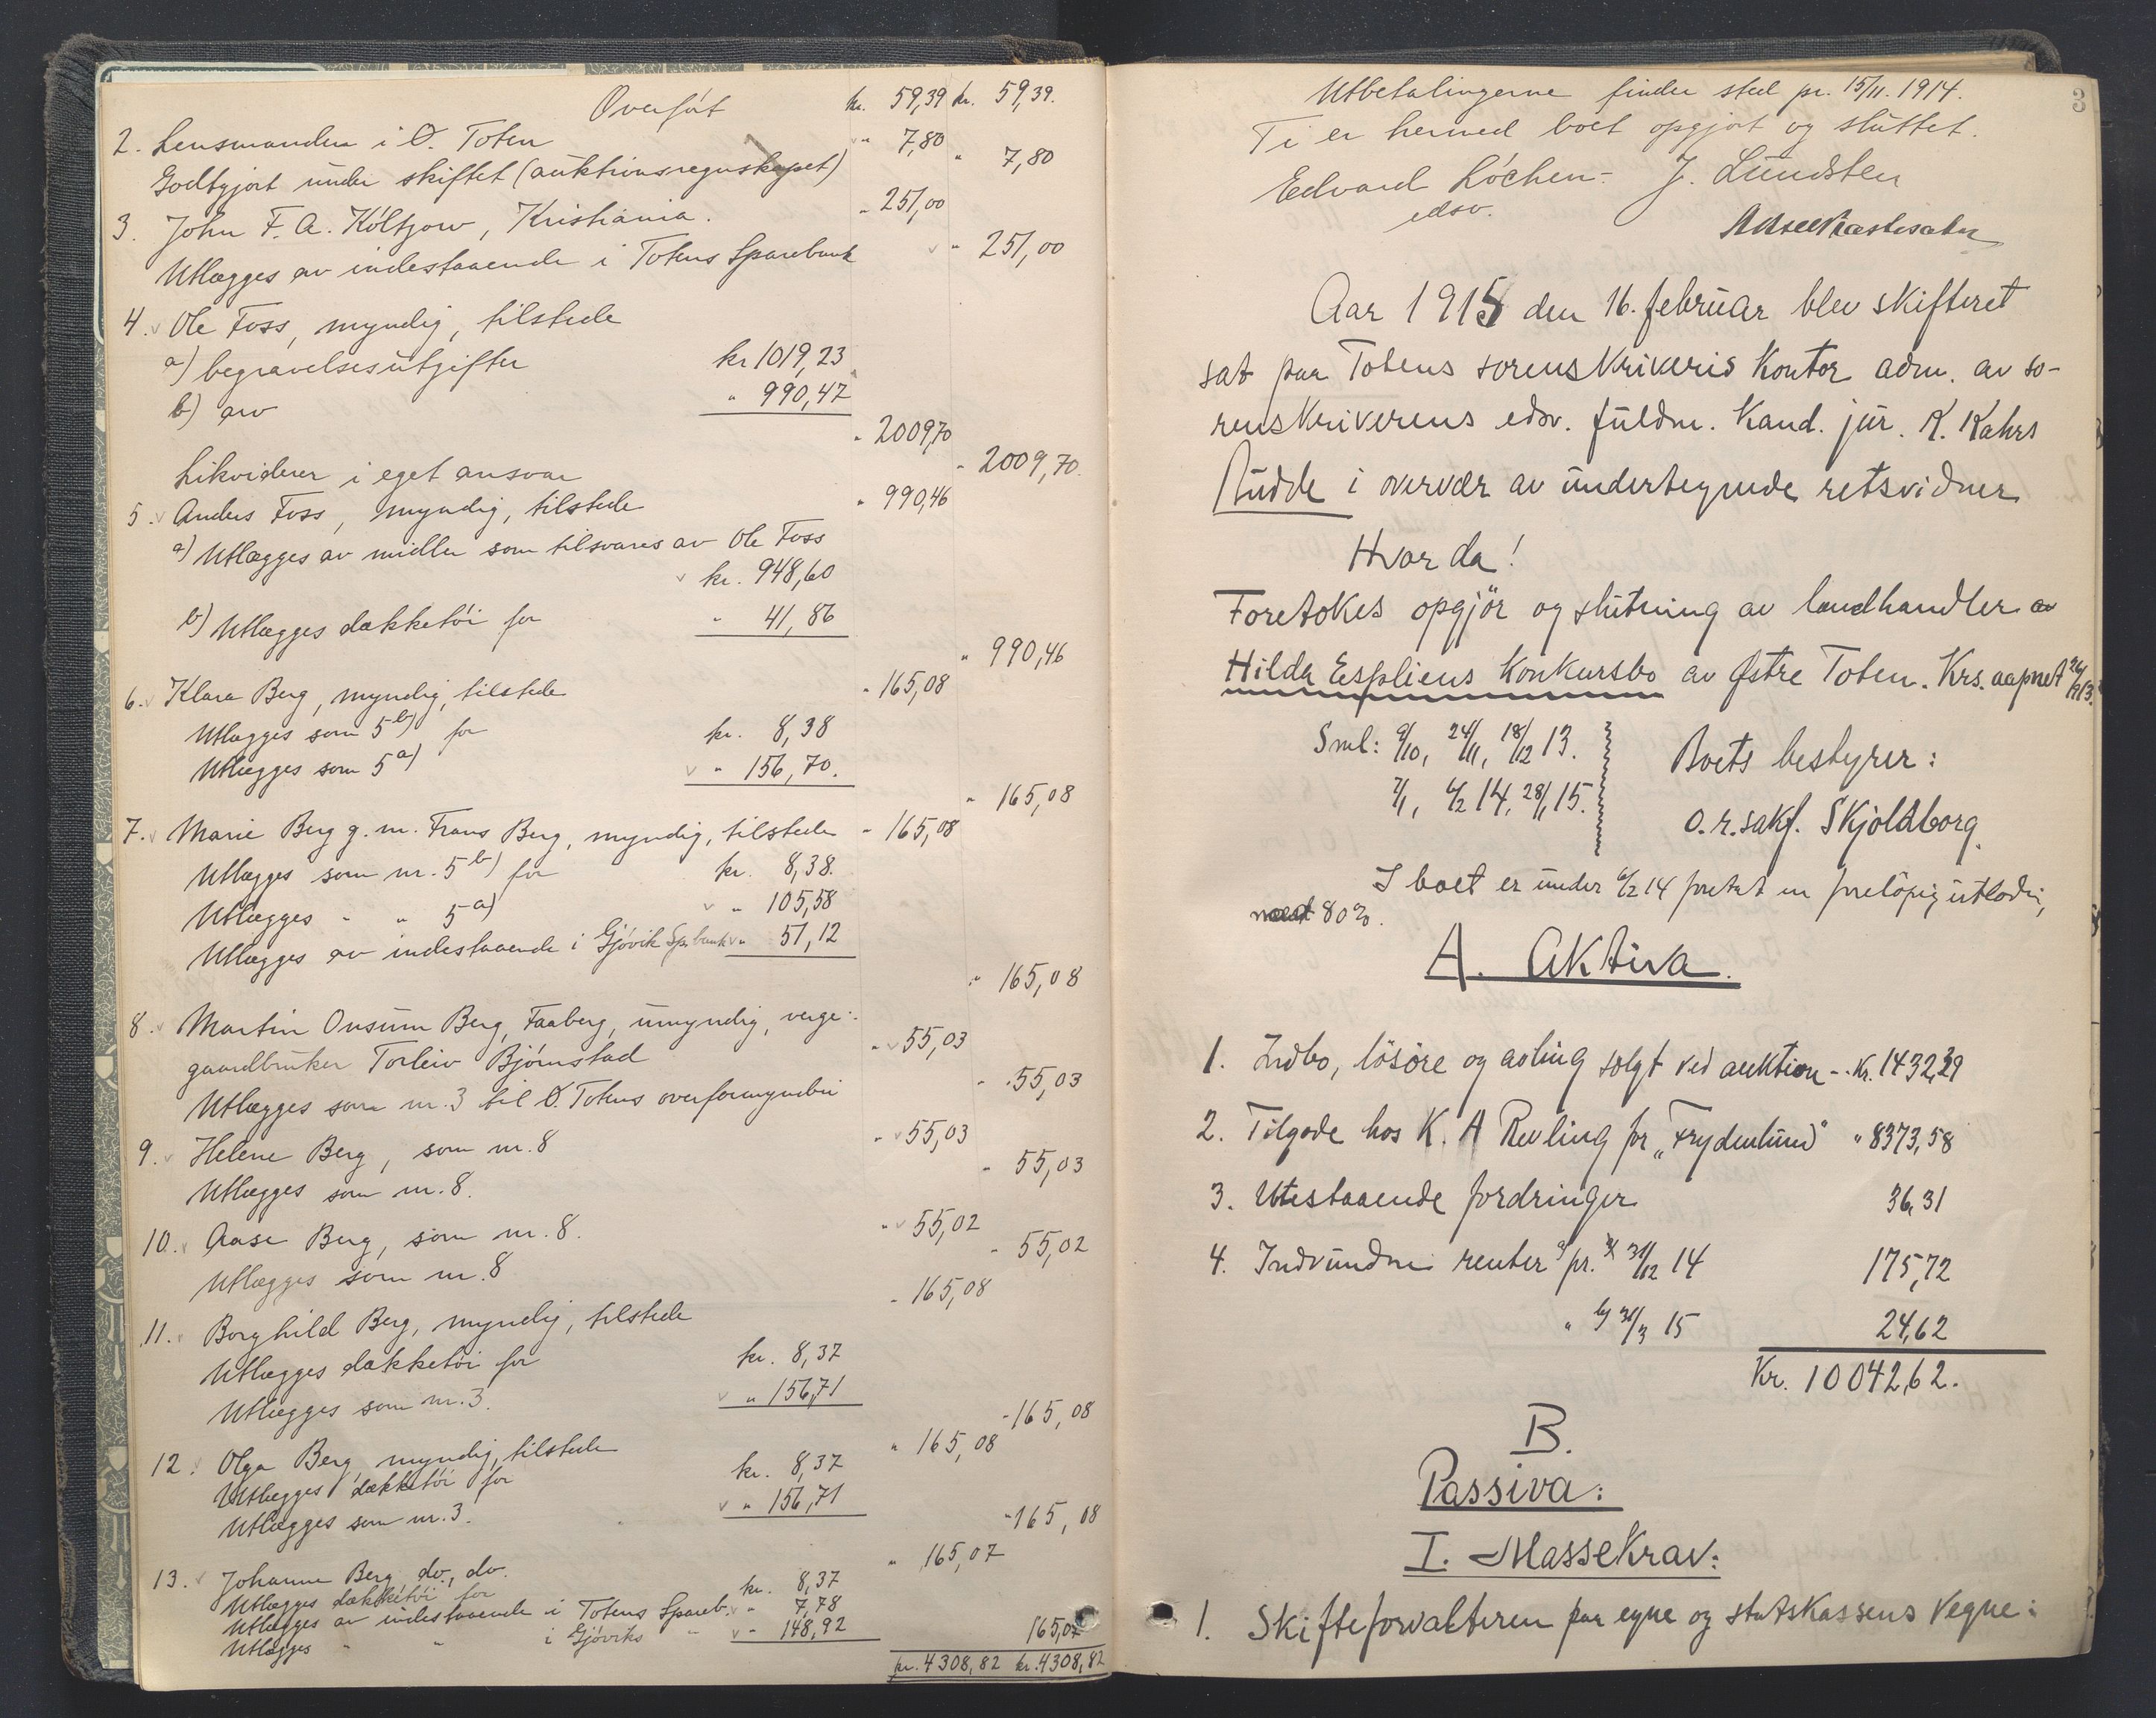 Overført kr. 59,39 kr. 59,39.
2. Lensmanden i Ø. Toten " 7,80
Godtgjort under skiftet (auktionsregnskapet) " 7,80
3. John F. A. Költzow, Kristiania. " 251,00
Utlægges av indestaaende i Totens Sparebank " 251,00
4. Ole Foss, myndig, tilstede
a) begravelsesutgifter kr 1019,23
b) arv " 990,47
" 2009,70
Likviderer i eget ansvar " 2009,70.
5. Anders Foss, myndig, tilstede " 990,46
a) Utlægges av midler som tilsvares av Ole Foss
kr. 948,60
b) Utlægges dækketöi for " 41,86
" 990,46
6. Klara Berg, myndig, tilstede " 165,08
Utlægges som 5 b) for kr. 8,38
Utlægges som 5 a) " 156,70.
" 165,08
7. Marie Berg g. m. Frans Berg, myndig, tilstede " 165,08
Utlægges som nr. 5 b) for kr. 8,38.
Utlægges " " 5 a) " 105,58
Utlægges av indestaaende i Gjövik Sp.bank " 51,12
" 165,08
8. Martin Onsum Berg, Faaberg, umyndig, verge:
gaardbruker Torleiv Björnstad " 55,03
Utlægges som nr. 3 til Ø. Totens overformynderi " 55,03
9. Helene Berg, som nr. 8 " 55,03
Utlægges som nr. 8. " 55,03
10. Aase Berg, som nr. 8. " 55,02
Utlægges som nr. 8 " 55,02
11. Borghild Berg, myndig, tilstede " 165,08
Utlægges dækketöi for kr. 8,37
Utlægges som nr. 3. " 156,71
" 165,08
12. Olga Berg, myndig, tilstede " 165,08
Utlægges dækketöi for kr. 8,37
Utlægges som nr. 3. " 156,71
" 165,08
13. Johanne Berg do., do. " 165,07
Utlægges dækketöi for kr. 8,37
Utlægges av indestaaende i Totens Spareb. " 7,78
Utlægges " " i Gjöviks " " 148,92
165,07
kr. 4308,82 kr. 4308,82
3
Utbetalingerne finder sted pr. 15/11. 1914.
Ti er hermed boet opgjort og sluttet.
Edvard Löchen J. Lundsten
edsv.
Aar 1915 den 16. februar blev skifteret
sat paa Totens sorenskriveris kontor adm. av so-
renskriverens edsv. fuldm. kand. jur. K. Kahrs
Budde i overvær av undertegnede retsvidner
Hvorda!
Foretokes opgjör og slutning av landhandler
Hilda Espliens konkursbo av Østre Toten. Krs. aapnet
Sml: 9/10, 24/11, 18/12 13. Boets bestyrer:
7/1, 6/2 14, 28/1 15. o.r.sakf. Skjoldborg.
I boet er under 6/2 14 foretat en forelöpig utlodn.
med 80%.
A. Aktiva.
1. Indbo, lösöre og avling solgt ved auktion - Kr. 1432,39
2. Tilgode hos K. A Revling for "Frydenlund" " 8373,58
3. Utestaaende fordringer 36,31
4. Indvundne renter a) pr. 31/12 14 175,72
" b) 31/3 15 24,62
Kr. 10042,62.
B.
Passiva:
I. Massekrav:
1. Skifteforvalteren paa egne og statskassens vegne: